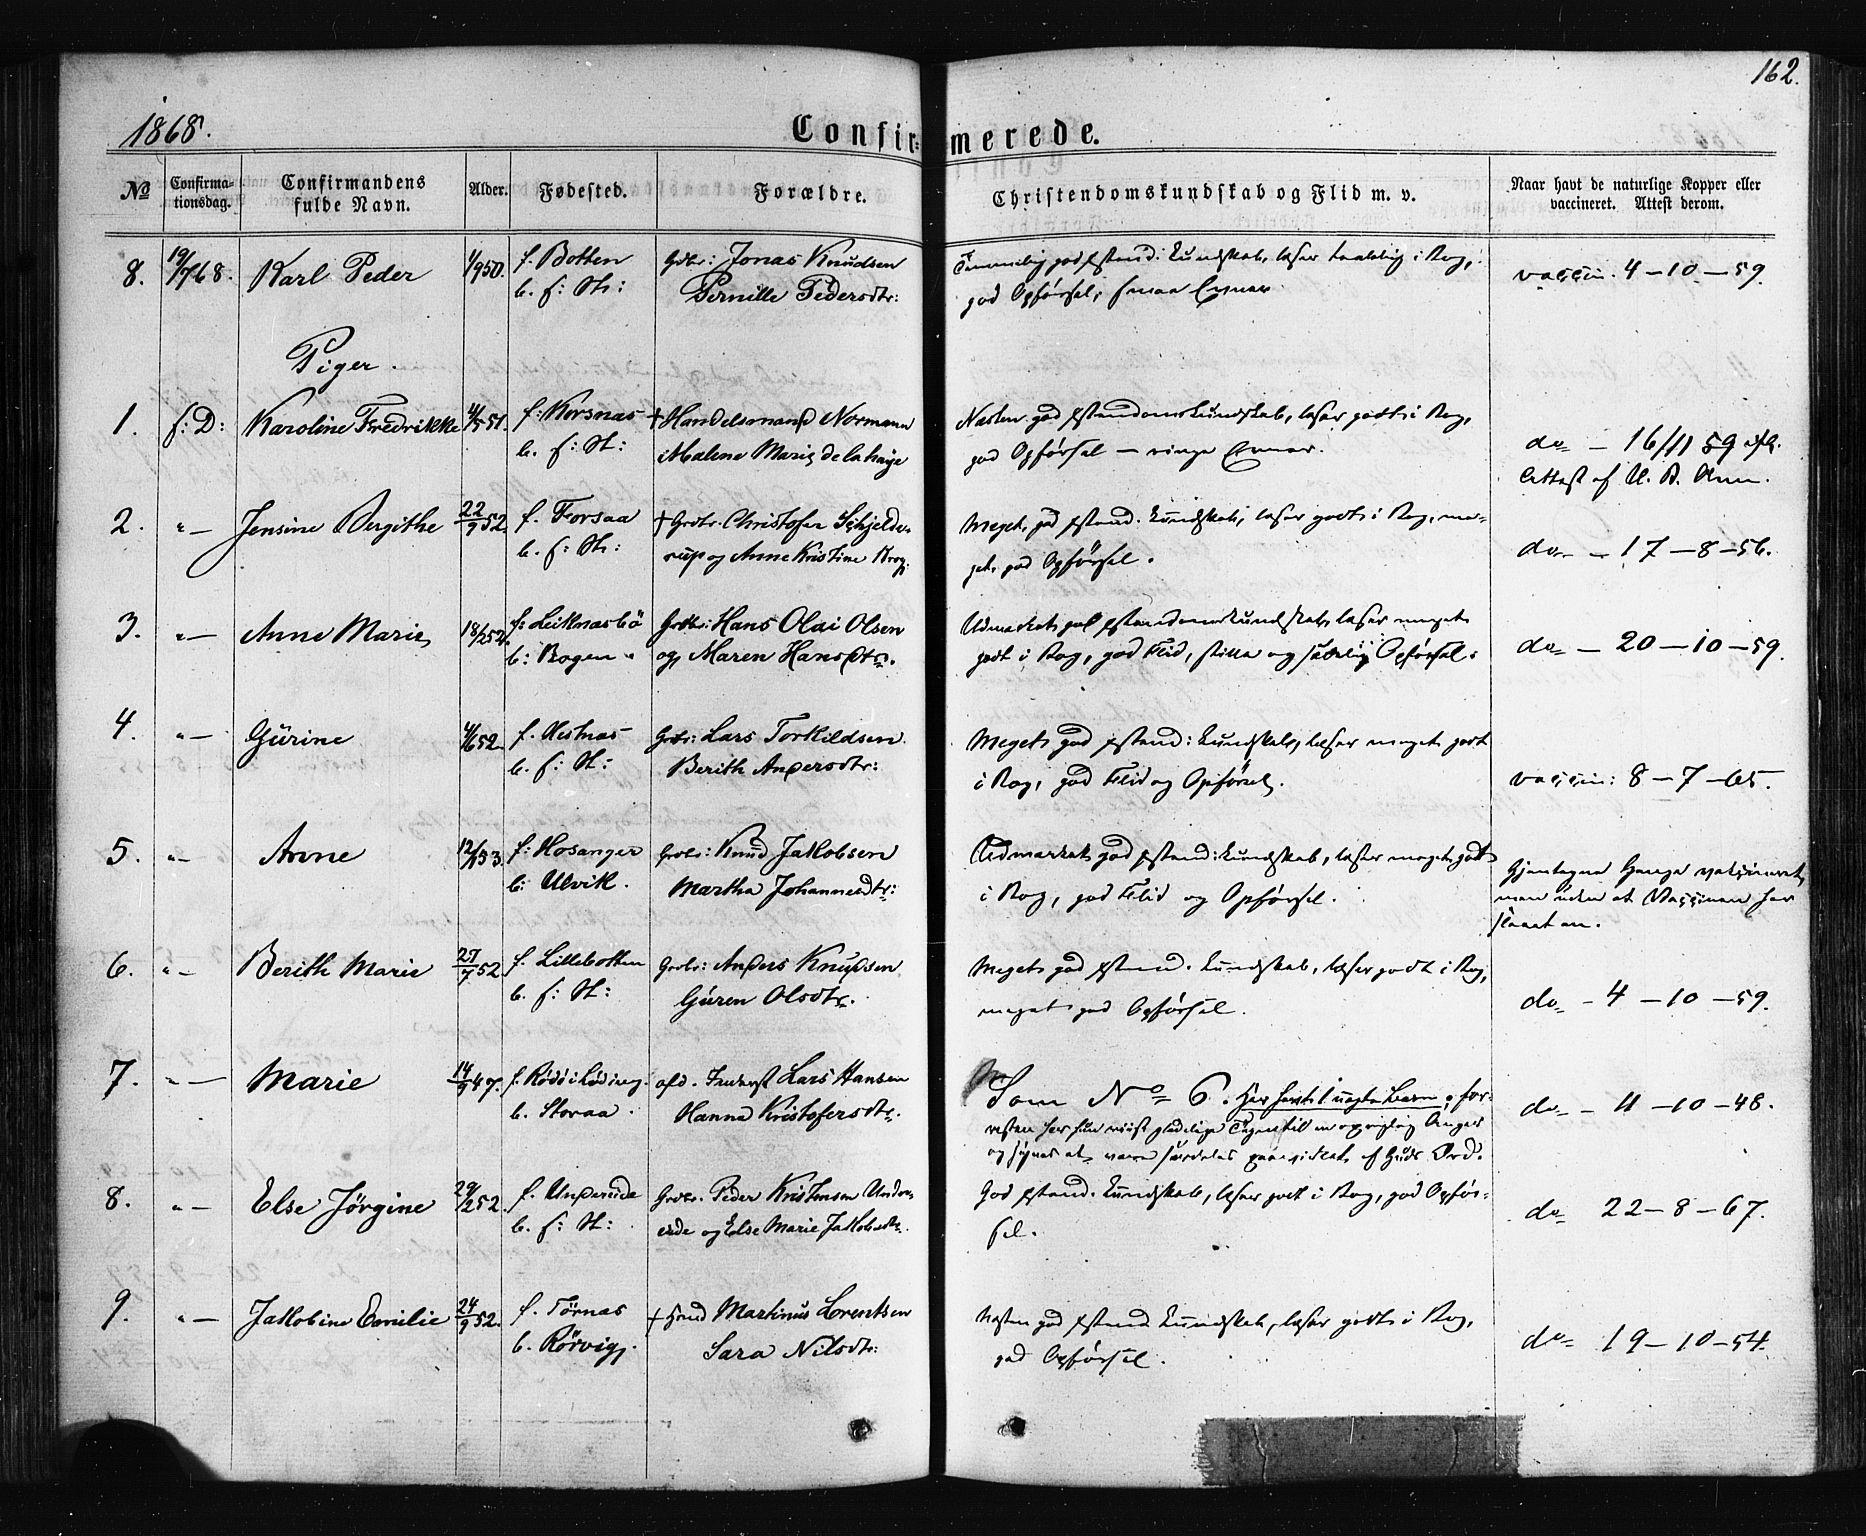 162.
1868.
Confir= merede.
No
Confirma-
tionsdag.
Confirmandens
fulde Navn.
Alder.
Fødested.
Forældre.
Christendomskundskab og Flid m. v.
Naar havt de naturlige Kopper eller
vaccineret. Attest derom.
8. 19/7 68. Karl Peder 1/9 50. f. Botten Gdbr: Jonas Knudsen god kundskab, læser i Bog,
b. f: St: Pernille Pedersdtr: god Opførsel; smaa Evner.
vaccin. 4-10-59.
Piger.
1. s: D: Karoline Fredrikke 4/5 51. f: Korsnæs + Handelsmand Normann Næsten god kundskab, læser godt i Bog,
b. f: St: Malene Marie de la haye god Opførsel — ringe Evner.
do — 16/11 59
Attest af
2. "— Jensine Bergithe 22/9 52. f. Forsaa + Grdbr. Christofer Schjelde- Meget god kundskab, læser godt i Bog, me-
b. f: St: rup og Anne Kristine get god Opførsel.
do — 17-8-56.
3. "— Anne Marie 18/2 52. f: Leiknasbö Grdbr: Hans Olai Olsen Udmærket god kundskab, læser meget
b: Bogen. og Maren Hansdtr. godt i Bog, god Flid, stille og sædelig Opførsel.
do — 20-10-59.
4. "— Gürine 4/6 52. f. Hestnæs Grdbr: Lars Torkildsen. Meget god kundskab, læser meget godt
b. f: St: Berith Andersdtr: i Bog, god Flid og Opførsel.
vaccin: 8-7-65.
5. "— Anne 12/1 53. f: Hosanger Grdbr: Knud Jakobsen Udmærket god kundskab, læser meget godt
b: Ulvik. Martha Johannesdtr: i Bog, god Flid og Opførsel.
Gjentagne Gange vaccineret,
men uden at Vaccinen har
slaaet an.
6. "— Berith Marie 27/7 52 f. Lillebotten Grdbr: Anders Knudsen Meget god kundskab, læser godt i Bog,
b. f: St: Gúren Olsdtr. meget god Opførsel.
do — 4-10-59.
7. "— Marie 14/9 47. f. Rödö i Löding. afd. Inderst Lars Hansen Som No 6. Har havt 1 uægte Barn; for-
b. Storaa. Hanna Kristofersdtr. resten har hun viist glædelige Tegn til en oprigtig Anger
og synes at være særdeles paavirket af Guds Ord.
do — 11-10-48.
8. "— Else Jörgine 29/2 52. f. Grdbr. Peder Kristensen God kundskab, læser godt i Bog, god Opfør-
b. f: St: og Else Marie Jakobsdtr. sel.
do 22-8-67.
9. "— Jakobine Emilie 24/9 52. f. Törnæs + Martinus Lorentsen Næsten god kundskab, læser godt i Bog,
b. Rörvig. Sara Nilsdtr: god Opførsel.
do 19-10-54.